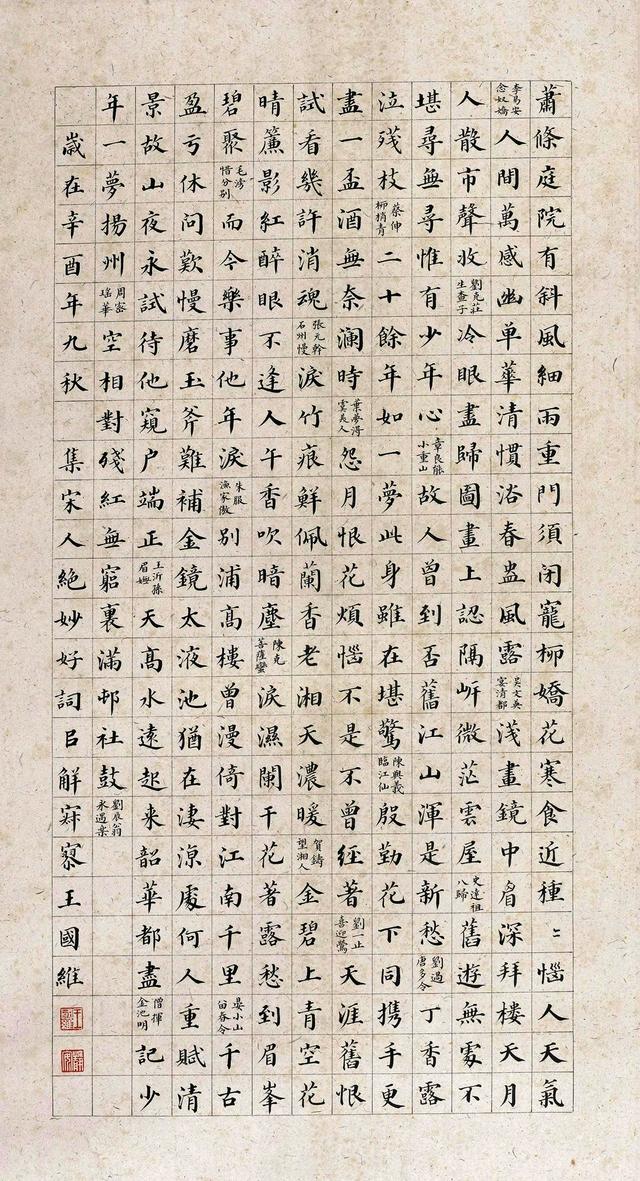 蕭條庭院有斜風細雨重門須閉寵柳嬌花寒食近種〻惱人天氣
李易安念奴嬌人間萬感幽單華清慣浴春盎風露吳文英宴清都淺畫鏡中眉深拜樓天月
人散市聲收劉克莊生查子冷眼盡歸圖畫上認隔岍微茫雲屋史達祖八歸舊遊無處不
堪尋無尋惟有少年心章良能小重山故人曾到否舊江山渾是新愁劉過唐多令丁香露
泣殘枝蔡伸柳梢青二十餘年如一夢此身雖在堪驚陳與義臨江仙殷勤花下同携手更
盡一盃酒無奈瀾時葉夢得虞美人怨月恨花煩惱不是不曾經著劉一止喜迎鶯天涯舊恨
試看幾許消魂張元幹石州慢淚竹痕鮮佩蘭香老湘天濃暖賀鑄望湘人金碧上青空花
晴簾影紅醉眼不逢人午香吹暗塵陳克菩薩蠻淚濕闌干花著露愁到眉峯
碧聚毛滂惜分別而今樂事他年淚朱服漁家傲別浦高樓曾漫倚對江南千里晏小山留春令千古
盈亏休問歎慢磨玉斧難補金鏡太液池猶在淒涼處何人重賦清
景故山夜永試待他窺户端正王沂孫眉嫵天高水遠起来韶華都盡僧揮金池明記少
年一夢揚州周密瑤華空相對殘紅無窮裏滿邨社鼓劉辰翁永遇樂
歲在辛酉年九秋 集宋人絕妙好詞㠯解寂寥王國維